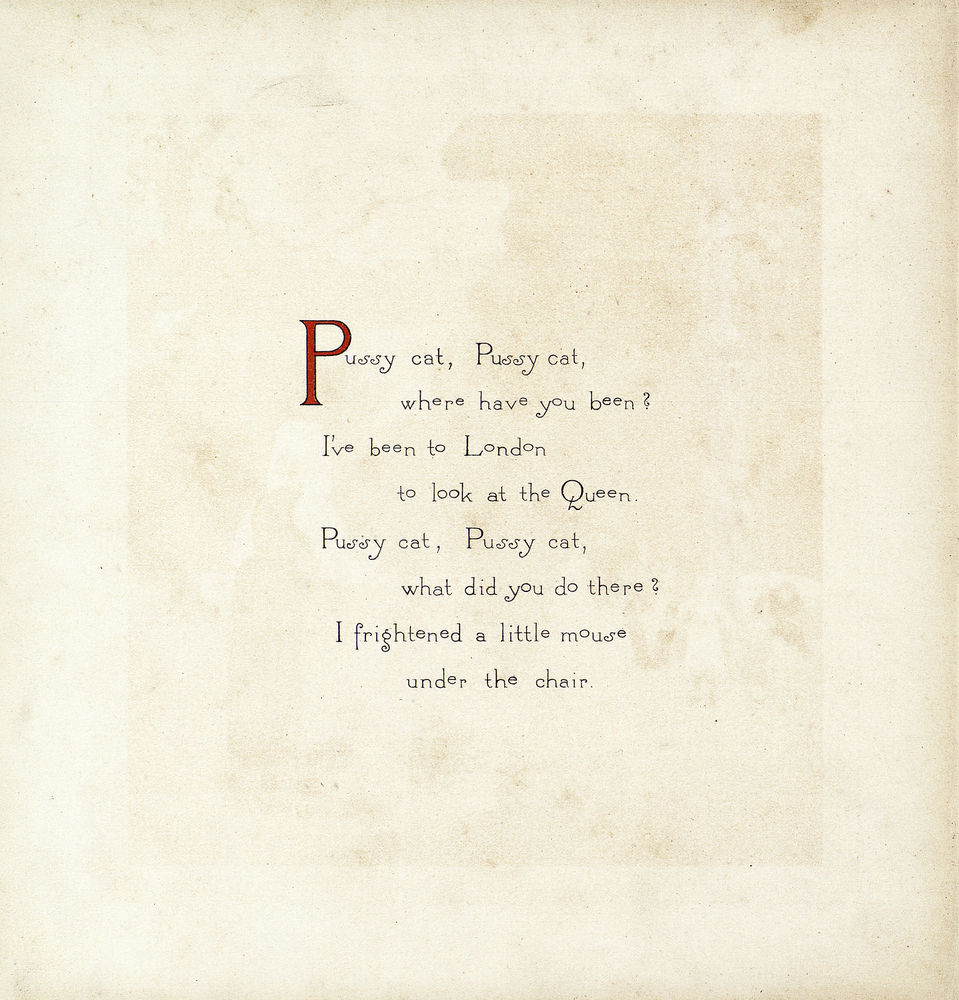 Pussy cat, Pussy cat,
where have you been?
I've been to London
to look at the Queen.
Pussy cat, Pussy cat,
what did you do there?
I frightened a little mouse
under the chair.